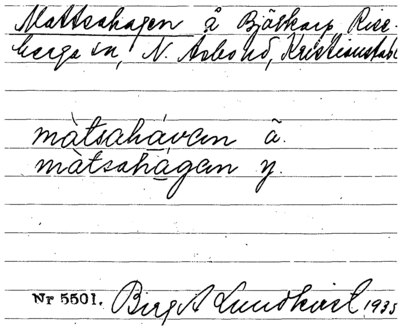 Mattsahagen å Björkarp Rise-
berga sn, N. Åsbo hd, Kristianstads
màtsahá̱van ä.
màtsahá̱gan y.
Nr 5501. Birg A Lundkvist 1935